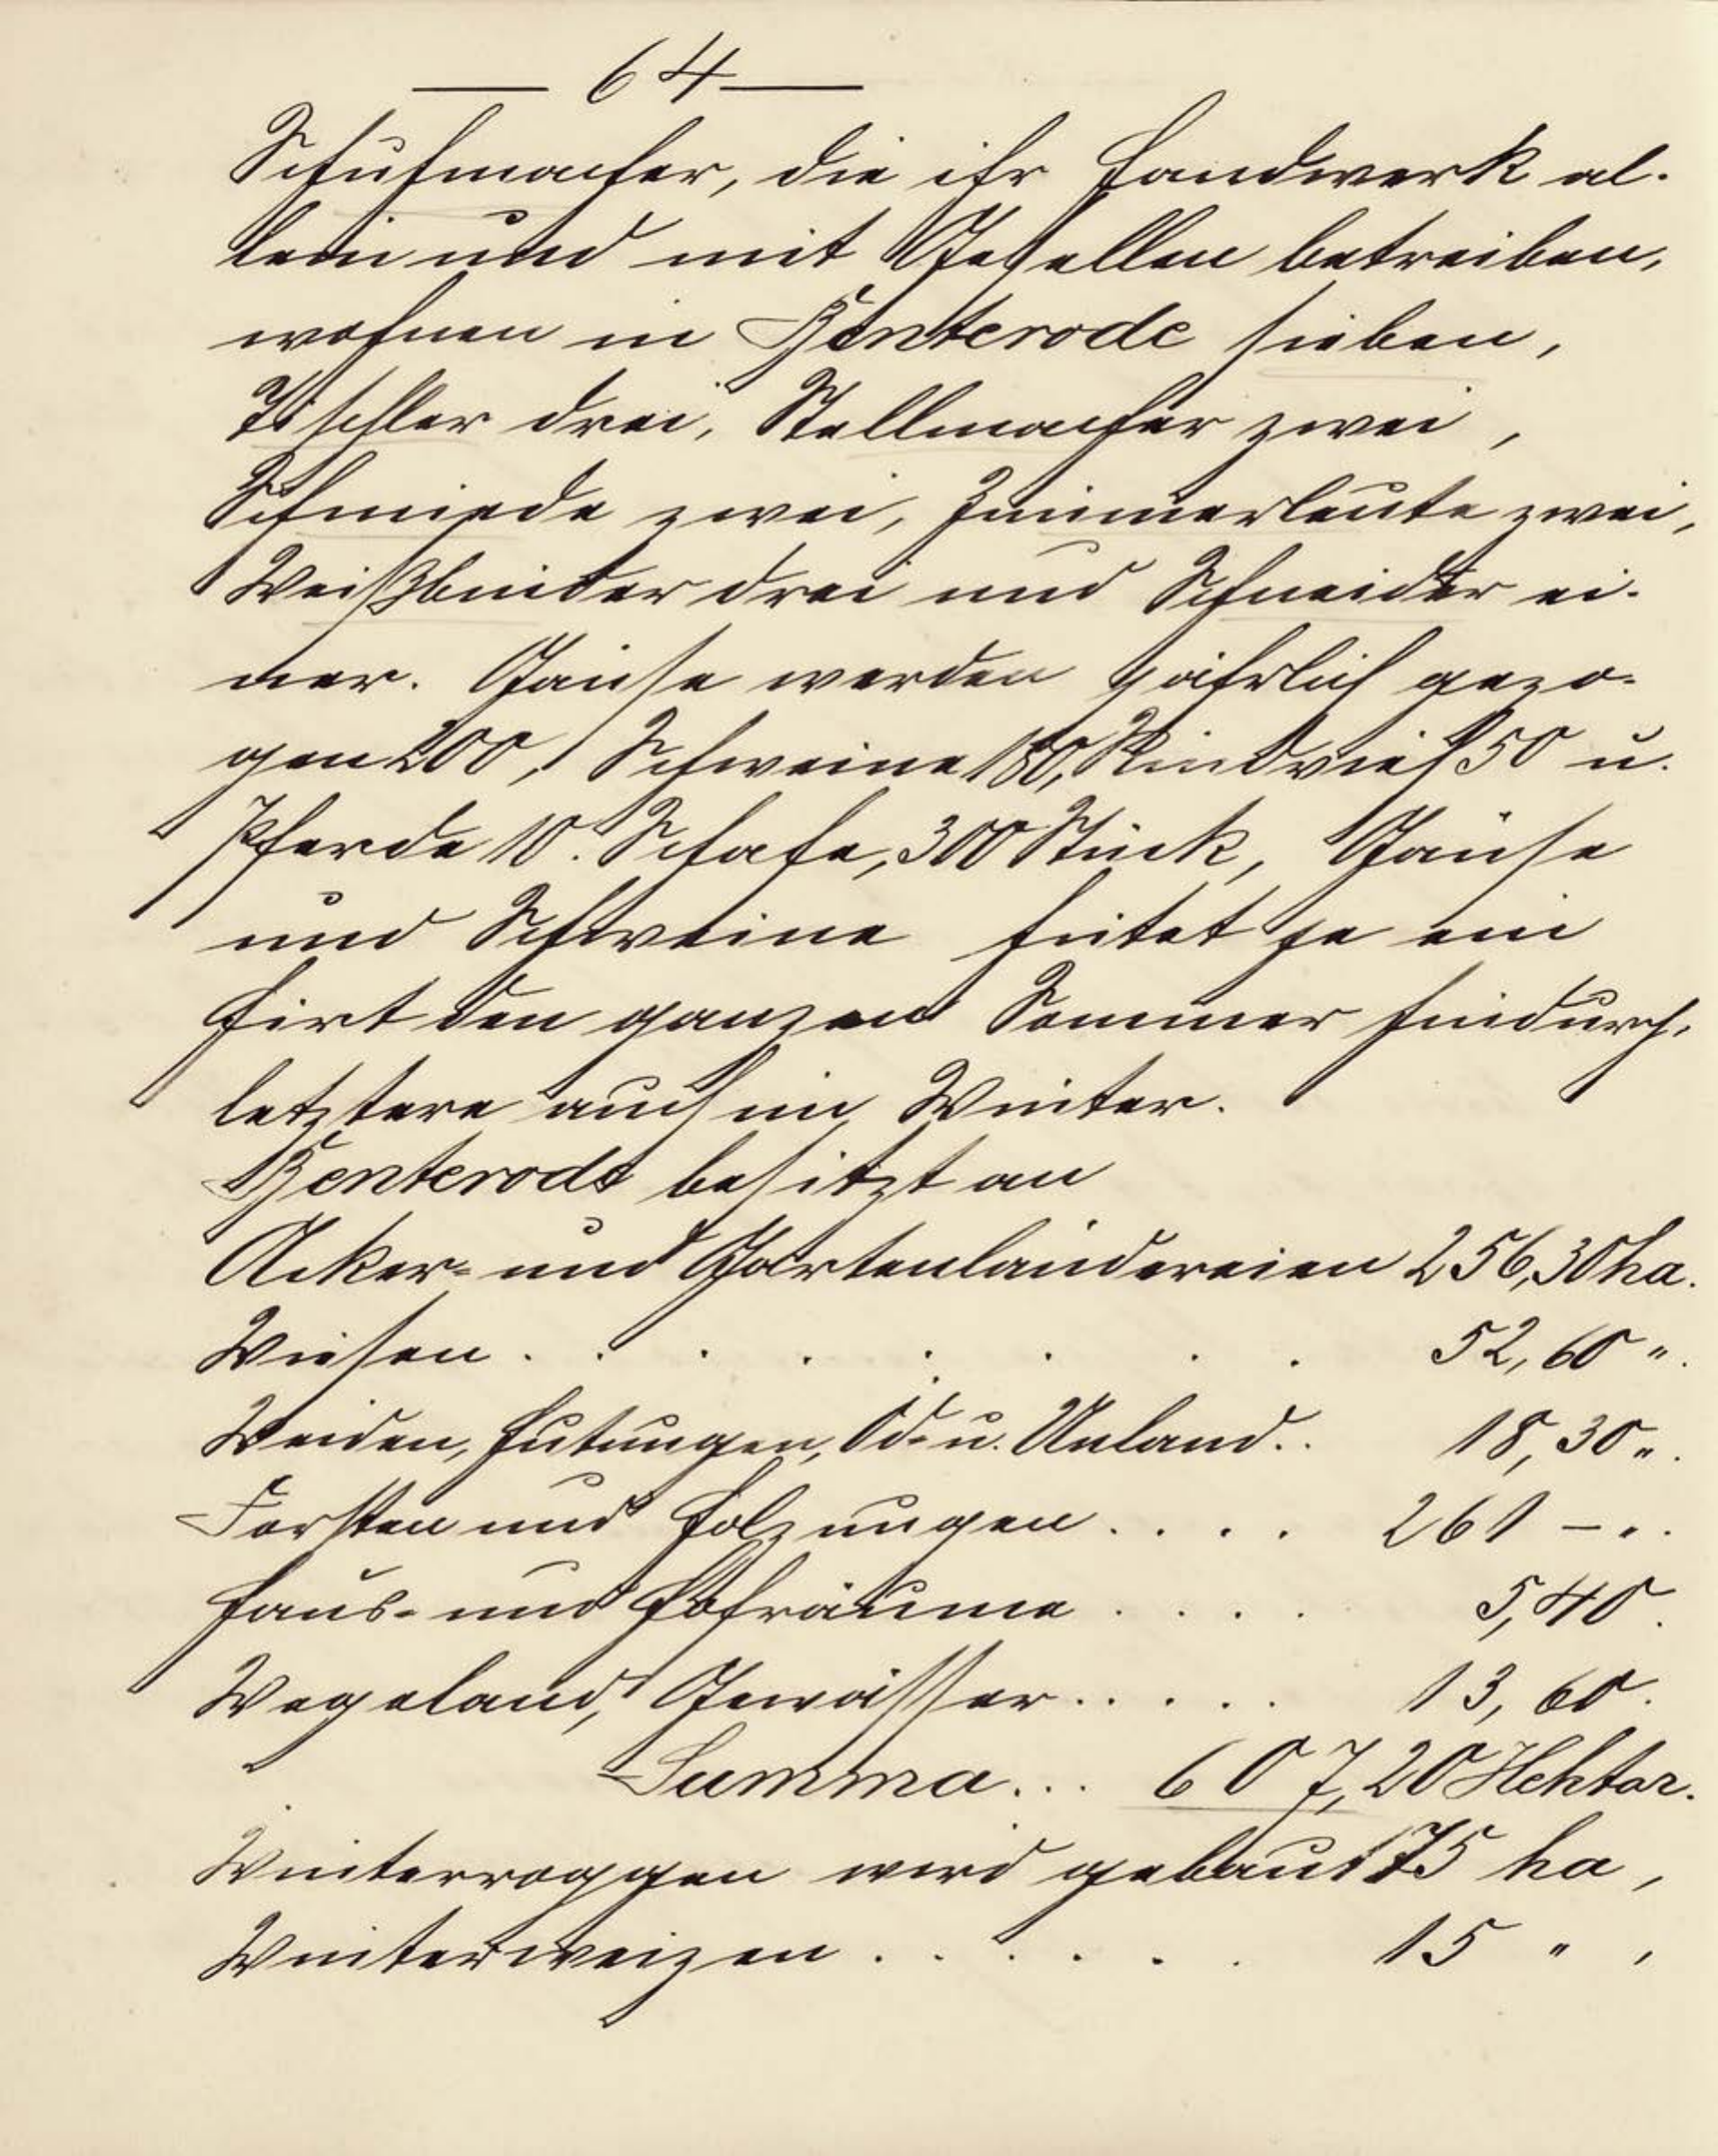 — 64 —
Schuhmacher, die ihr Handwerk al-
lein und mit Gesellen betreiben,
wohnen in Benterode sieben,
Tischler drei, Stellmacher zwei,
Schmiede zwei, Zimmerleute zwei,
Weißbinder drei und Schneider ei-
ner. Gänse werden jährlich gezo-
gen 200, Schweine 180, Rindvieh 50 u.
Pferde 10. Schafe, 300 Stück, Gänse
und Schweine hütet je ein
Hirt den ganzen Sommer hindurch,
letztere auch im Winter.
Benterode besitzt an
Acker- und Gartenländereien 256,30 ha.
Wiesen . . . . . . . . 52,60 ".
Weiden, Hutungen, Öd- u. Unland . . 18,30 ".
Forsten und Holzungen . . . . 261 — ".
Haus- und Hofräume . . . . 5,40.
Wegeland, Gewässer . . . . . 13,60.
Summa . . . 607,20 Hektar.
Winterroggen wird gebaut 75 ha,
Winterweizen . . . . . . 15 " ,